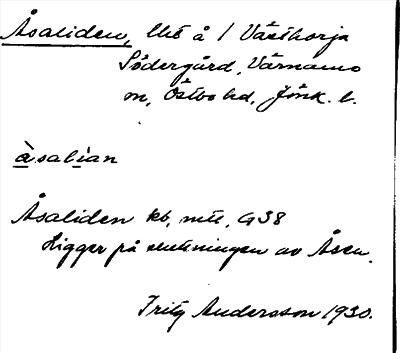 Åsaliden, lht å / Västhorja
Södergård, Värnamo
sn, Östbo hd, Jönk. l.
àsalian
Åsaliden kb, mtl, G38
Ligger på sluttningen av Åsen.
Fritz Andersson 1930.